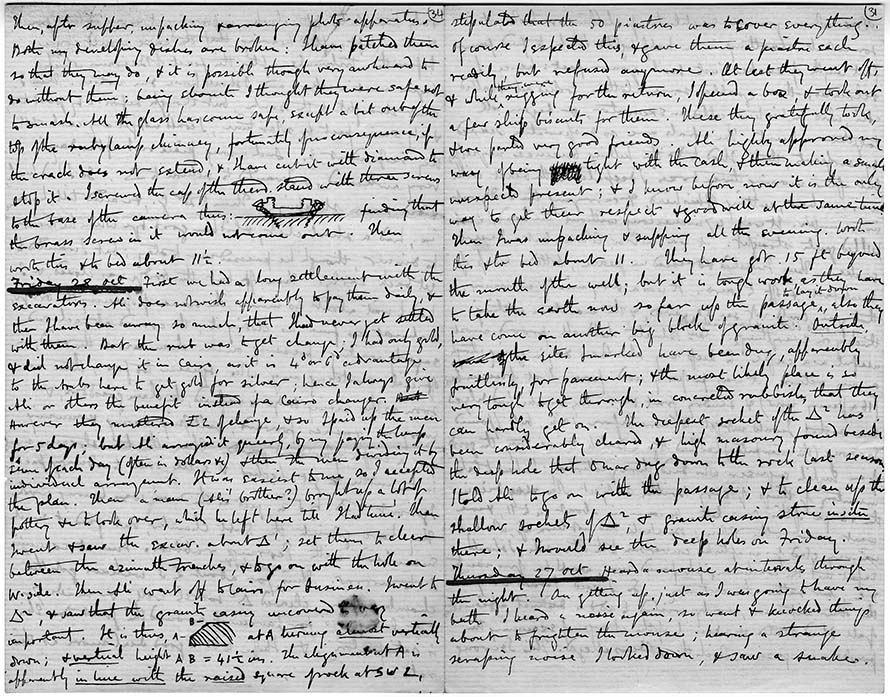 34
Then, after supper, unpacking & arranging photo-apparatus.
Both my developing dishes are broken: I have patched them
so that they may do, & it is possible though very awkward to
do without them; being ebonite I thought they were safe not
to smash. All the glass has come safe, except a bit out of the
top of the ruby lamp chimney, fortunately of no consequence, if
the crack does not extend, & I have cut it with diamond to
stop it. I screwed the cap of the stand with three screws
to the base of the camera thus: finding that
the brass screw in it would not come out. Then
wrote this & to bed about 11½.
Friday 28 Oct First we had a long settlement with the
excavators. Ali does not wish apparently to pay them daily, &
then I have been away so much, that I had never yet settled
with them. But the rub was to get change; I had only gold,
& did not change it in Cairo, as it is 4d or 6d advantage
to the Arabs here to get gold for silver; hence I always give
Ali or others the benefit instead of a Cairo changer.
However they mustered £2 of change, & so I paid up the men
for 5 days. but Ali arranged it queerly, by my paying the lump
sum of each day (often in dollars &) & then the men dividing it by
individual arrangement. It was easiest to me, so I accepted
the plan. Then a man (Ali's brother?) brought up a lot of
pottery & to look over, which he left here till I had time. Then
I went & saw the excav. about Δ¹; set them to clear
between the azimuth trenches, & to go on with the hole on
W. side. Then Ali went off to Cairo for business. I went to
Δ², & saw that the granite casing uncovered is very
important. It is thus, A- B- at A turning almost vertically
down; & vertical height AB = 41½ ins. The alignment A is
apparently in line with the raised square of rock at SW 2,
31
stipulated that the 50 piastres was to cover everything.
Of course I expected this, & gave them a piastre each
readily, but refused any more. At last they went off,
& while they were rigging for the return, I opened a box, & took out
a few ship biscuits for them. These they gratefully took,
& we parted very good friends. Ali highly approved my
way of being tight with the cash & then making a small
unexpected present; & I know before now it is the only
way to get their respect & goodwill at the same time
Then I was unpacking & supping all the evening. Wrote
this & to bed about 11. They have got 15 ft beyond
the mouth of the well; but it is tough work, as they have
to take the earth now so far up the passage, to lay it down also they
have come on another big block of granite. Outside,
some of the sites I marked have been dug, apparently
fruitlessly, for pavement; & the most likely place is so
very tough to get through, in concreted rubbish, that they
can hardly get on. The deepest socket of the Δ² has
been considerably cleared, & high masonry found beside
the deep hole that Omar dug down to the rock last season
I told Ali to go on with the passage; & to clean up the
shallow sockets of Δ², & granite casing stone in situ
there; & I would see the deep holes on Friday.
Thursday 27 Oct Heard a mouse at intervals through
the night. On getting up, just as I was going to have my
bath I heard a noise again, so went & knocked things
about to frighten the mouse; hearing a strange
scraping noise I looked down, & saw a snake.